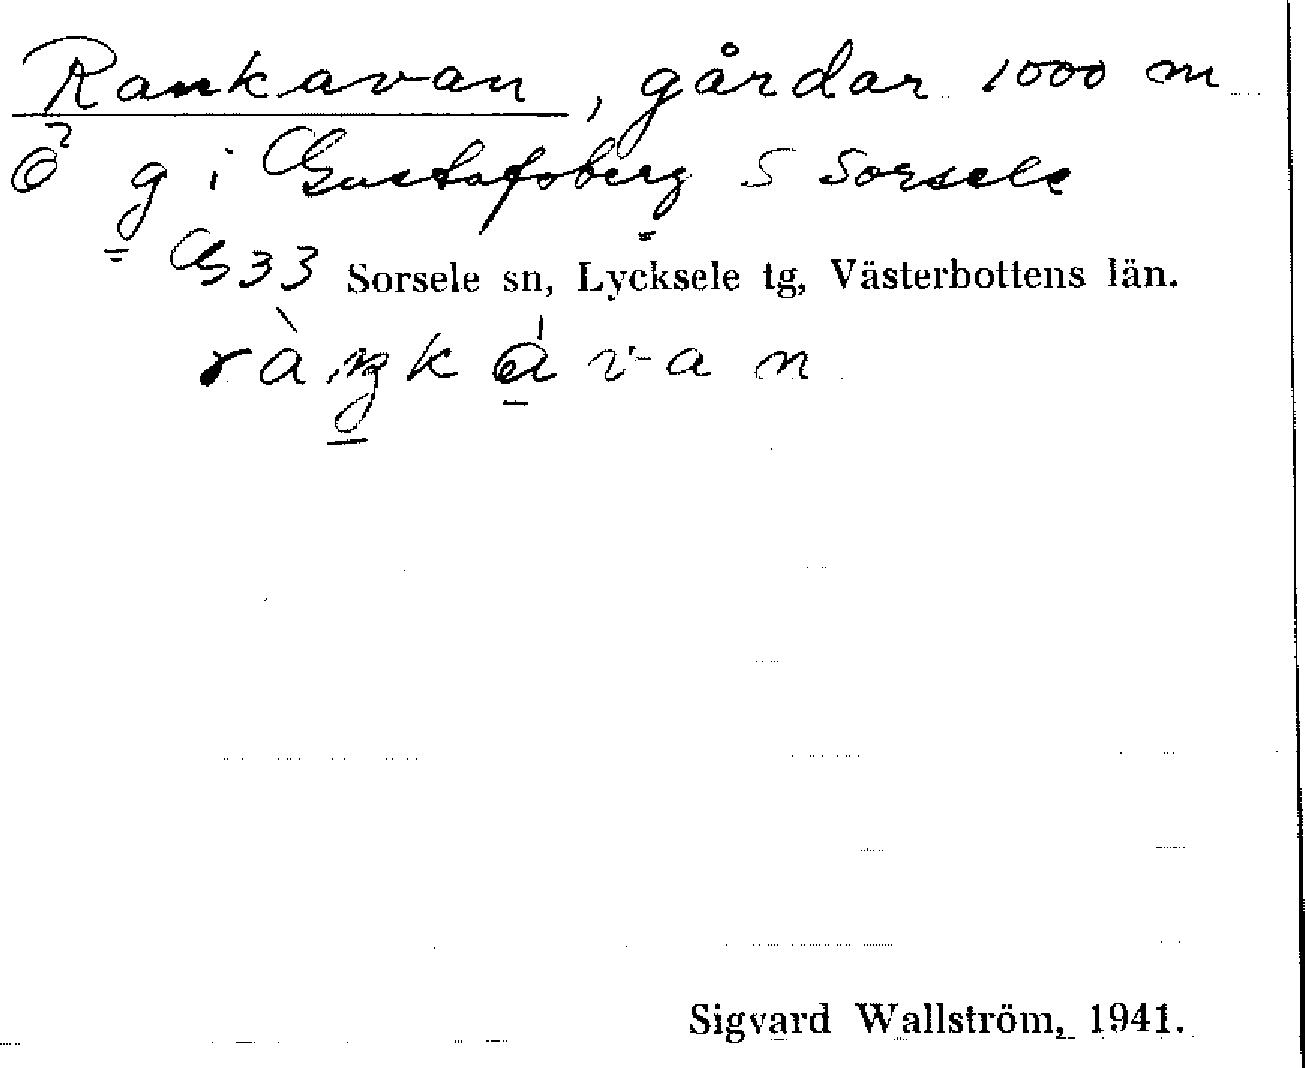 Rankavan, gårdar 1000 m
Ö g i Gustafsberg S Sorsele
G33 Sorsele sn, Lycksele tg, Västerbottens län.
ràŋkávan
Sigvard Wallström, 1941.